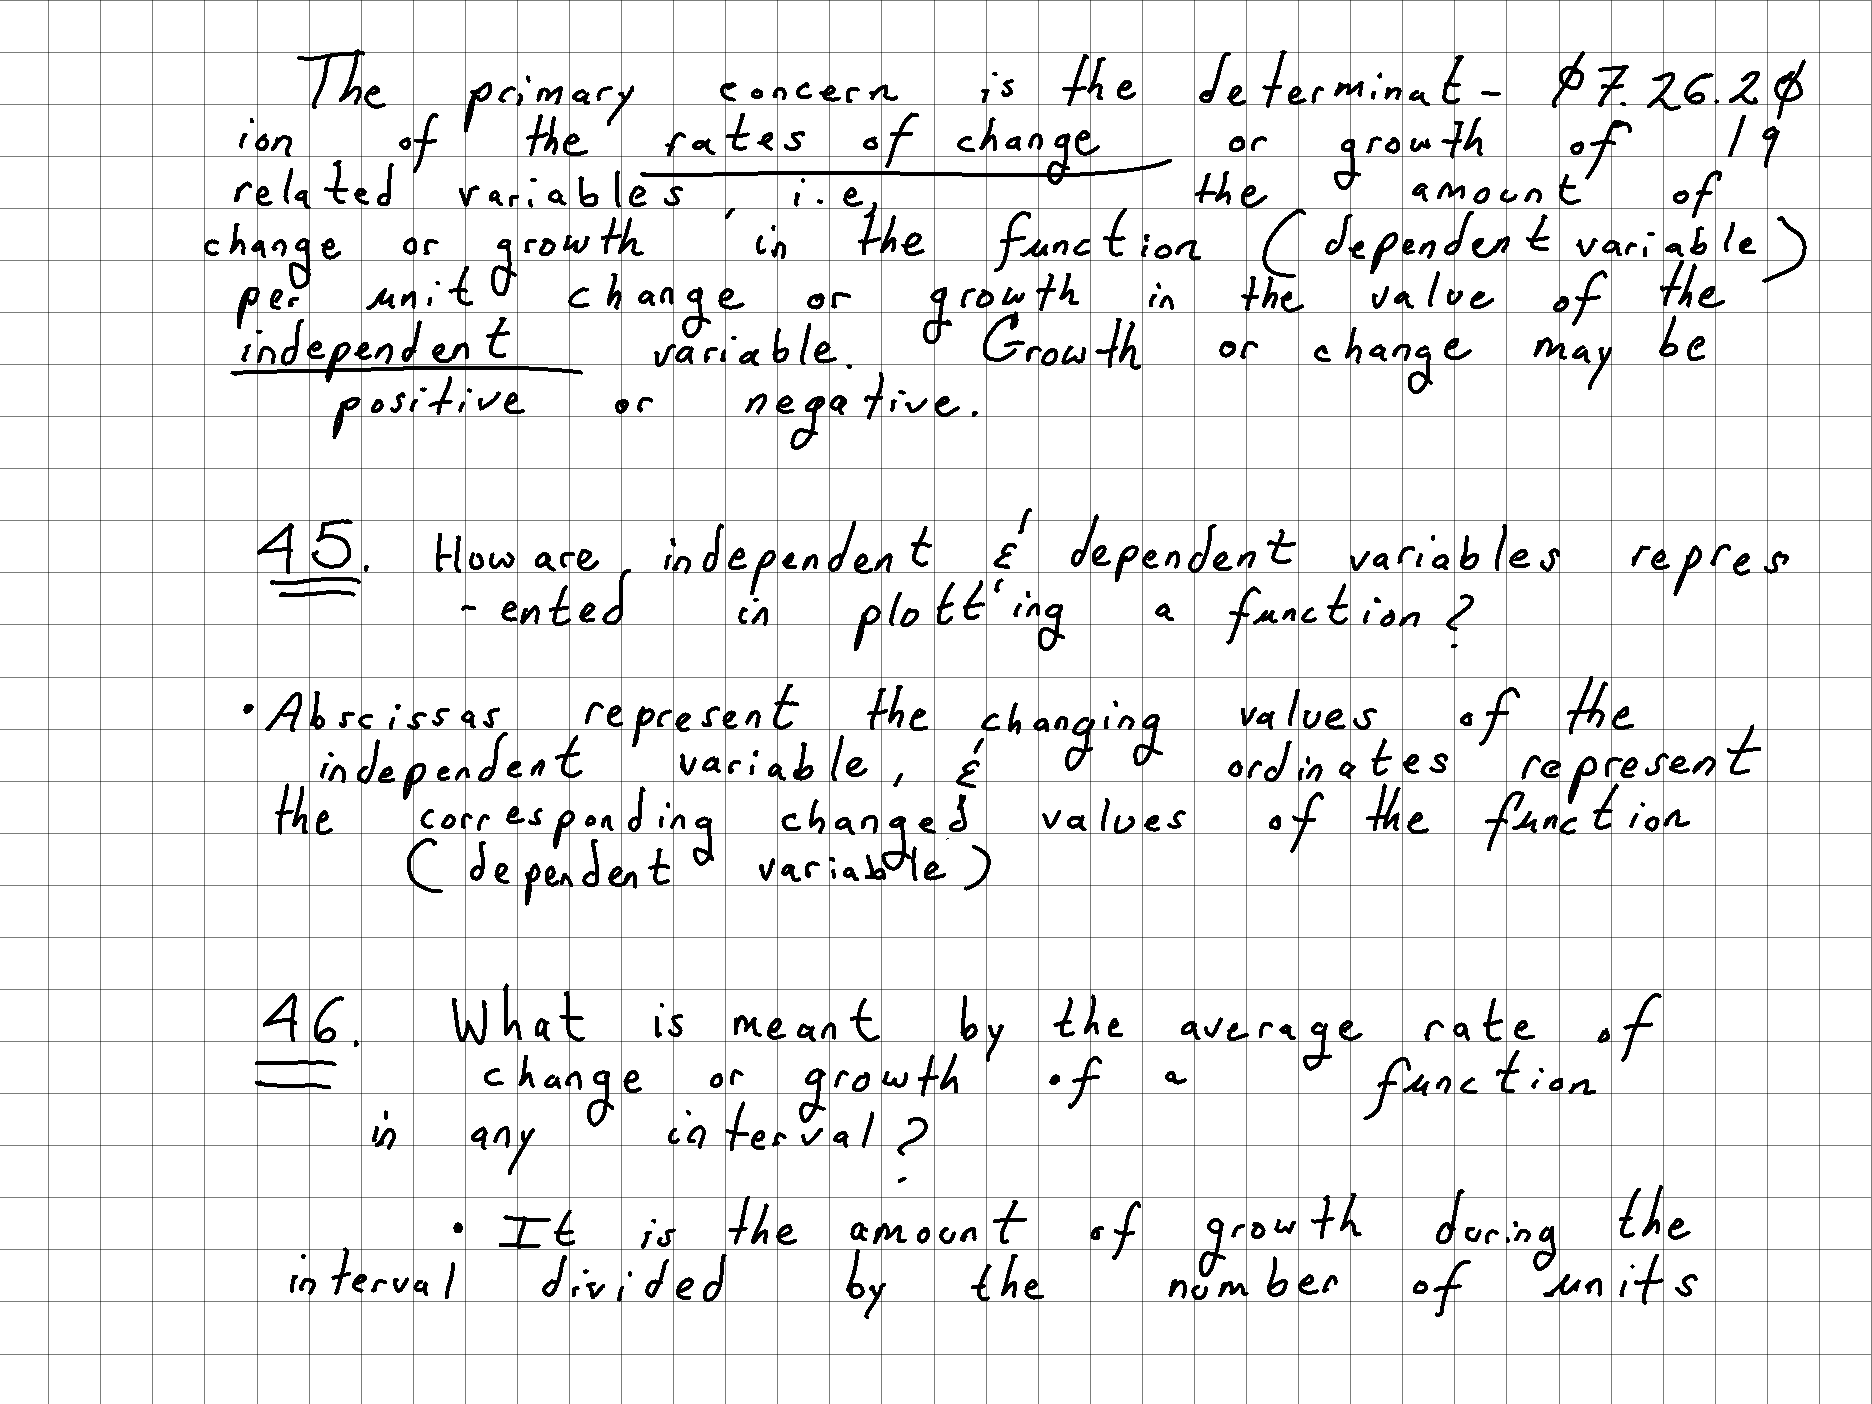 The primary concern is the determinat- 07.26.20
ion of the rates of change or growth of 19
related variables, i.e, the amount of
change or growth in the function (dependent variable)
per unit change or growth in the value of the
independent variable. Growth or change may be
positive or negative.
45. How are independent & dependent variables repres
-ented in plott'ing a function?
• Abscissas represent the changing values of the
independent variable, & ordinates represent
the corresponding changed values of the function
(dependent variable)
46. What is meant by the average rate of
change or growth of a function
in any interval?
• It is the amount of growth during the
interval divided by the number of units